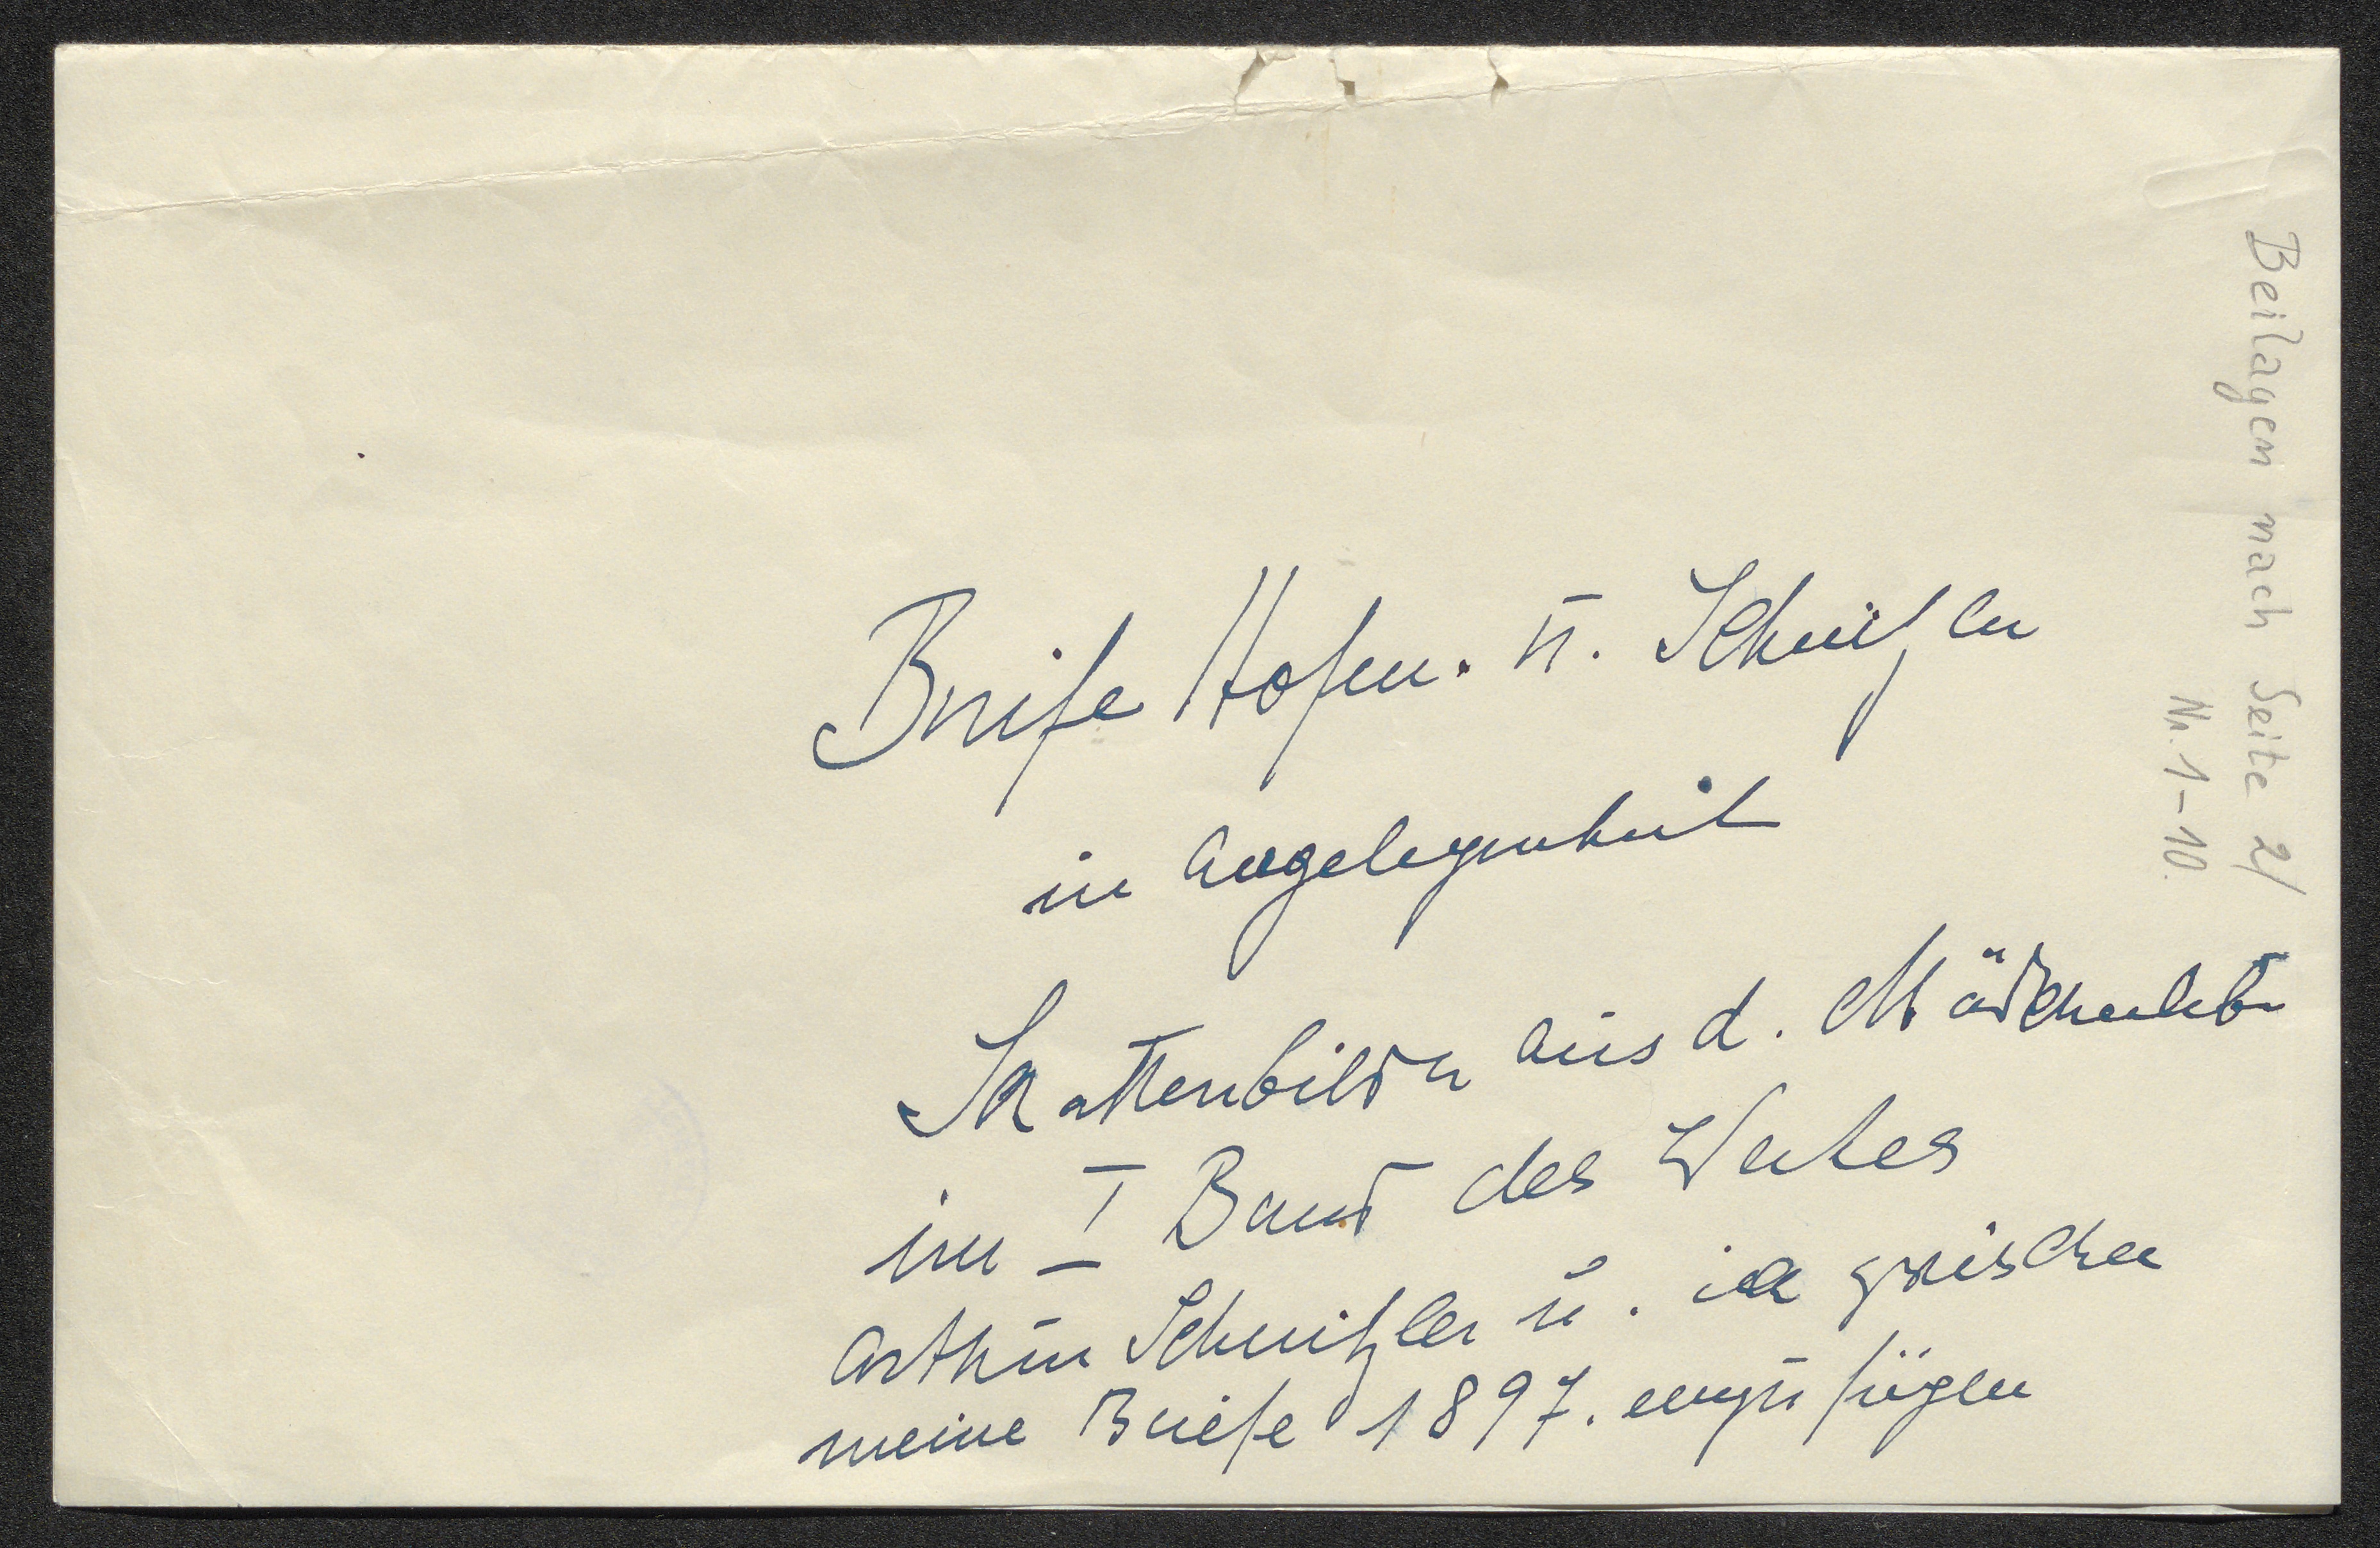 Briefe Hofm. u. Schnitzler
in Angelegenheit
Schattenbilder aus d. Mädchenleb
im I Band des Werkes
Arthur Schnitzler u. ich zwischen
meine Briefe 1897. einzufügen
Beilagen nach Seite 2/
Nr. 1-10.